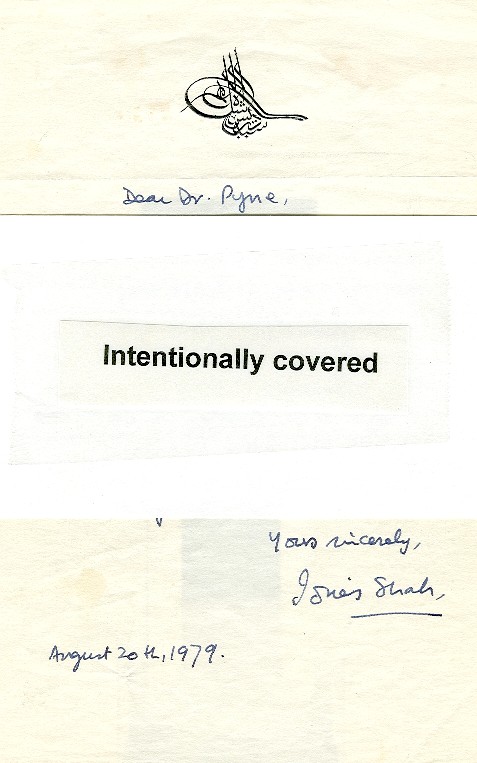 Dear Dr. Pyne,
Intentionally covered
Yours sincerely,
Idries Shah,
August 20th, 1979.